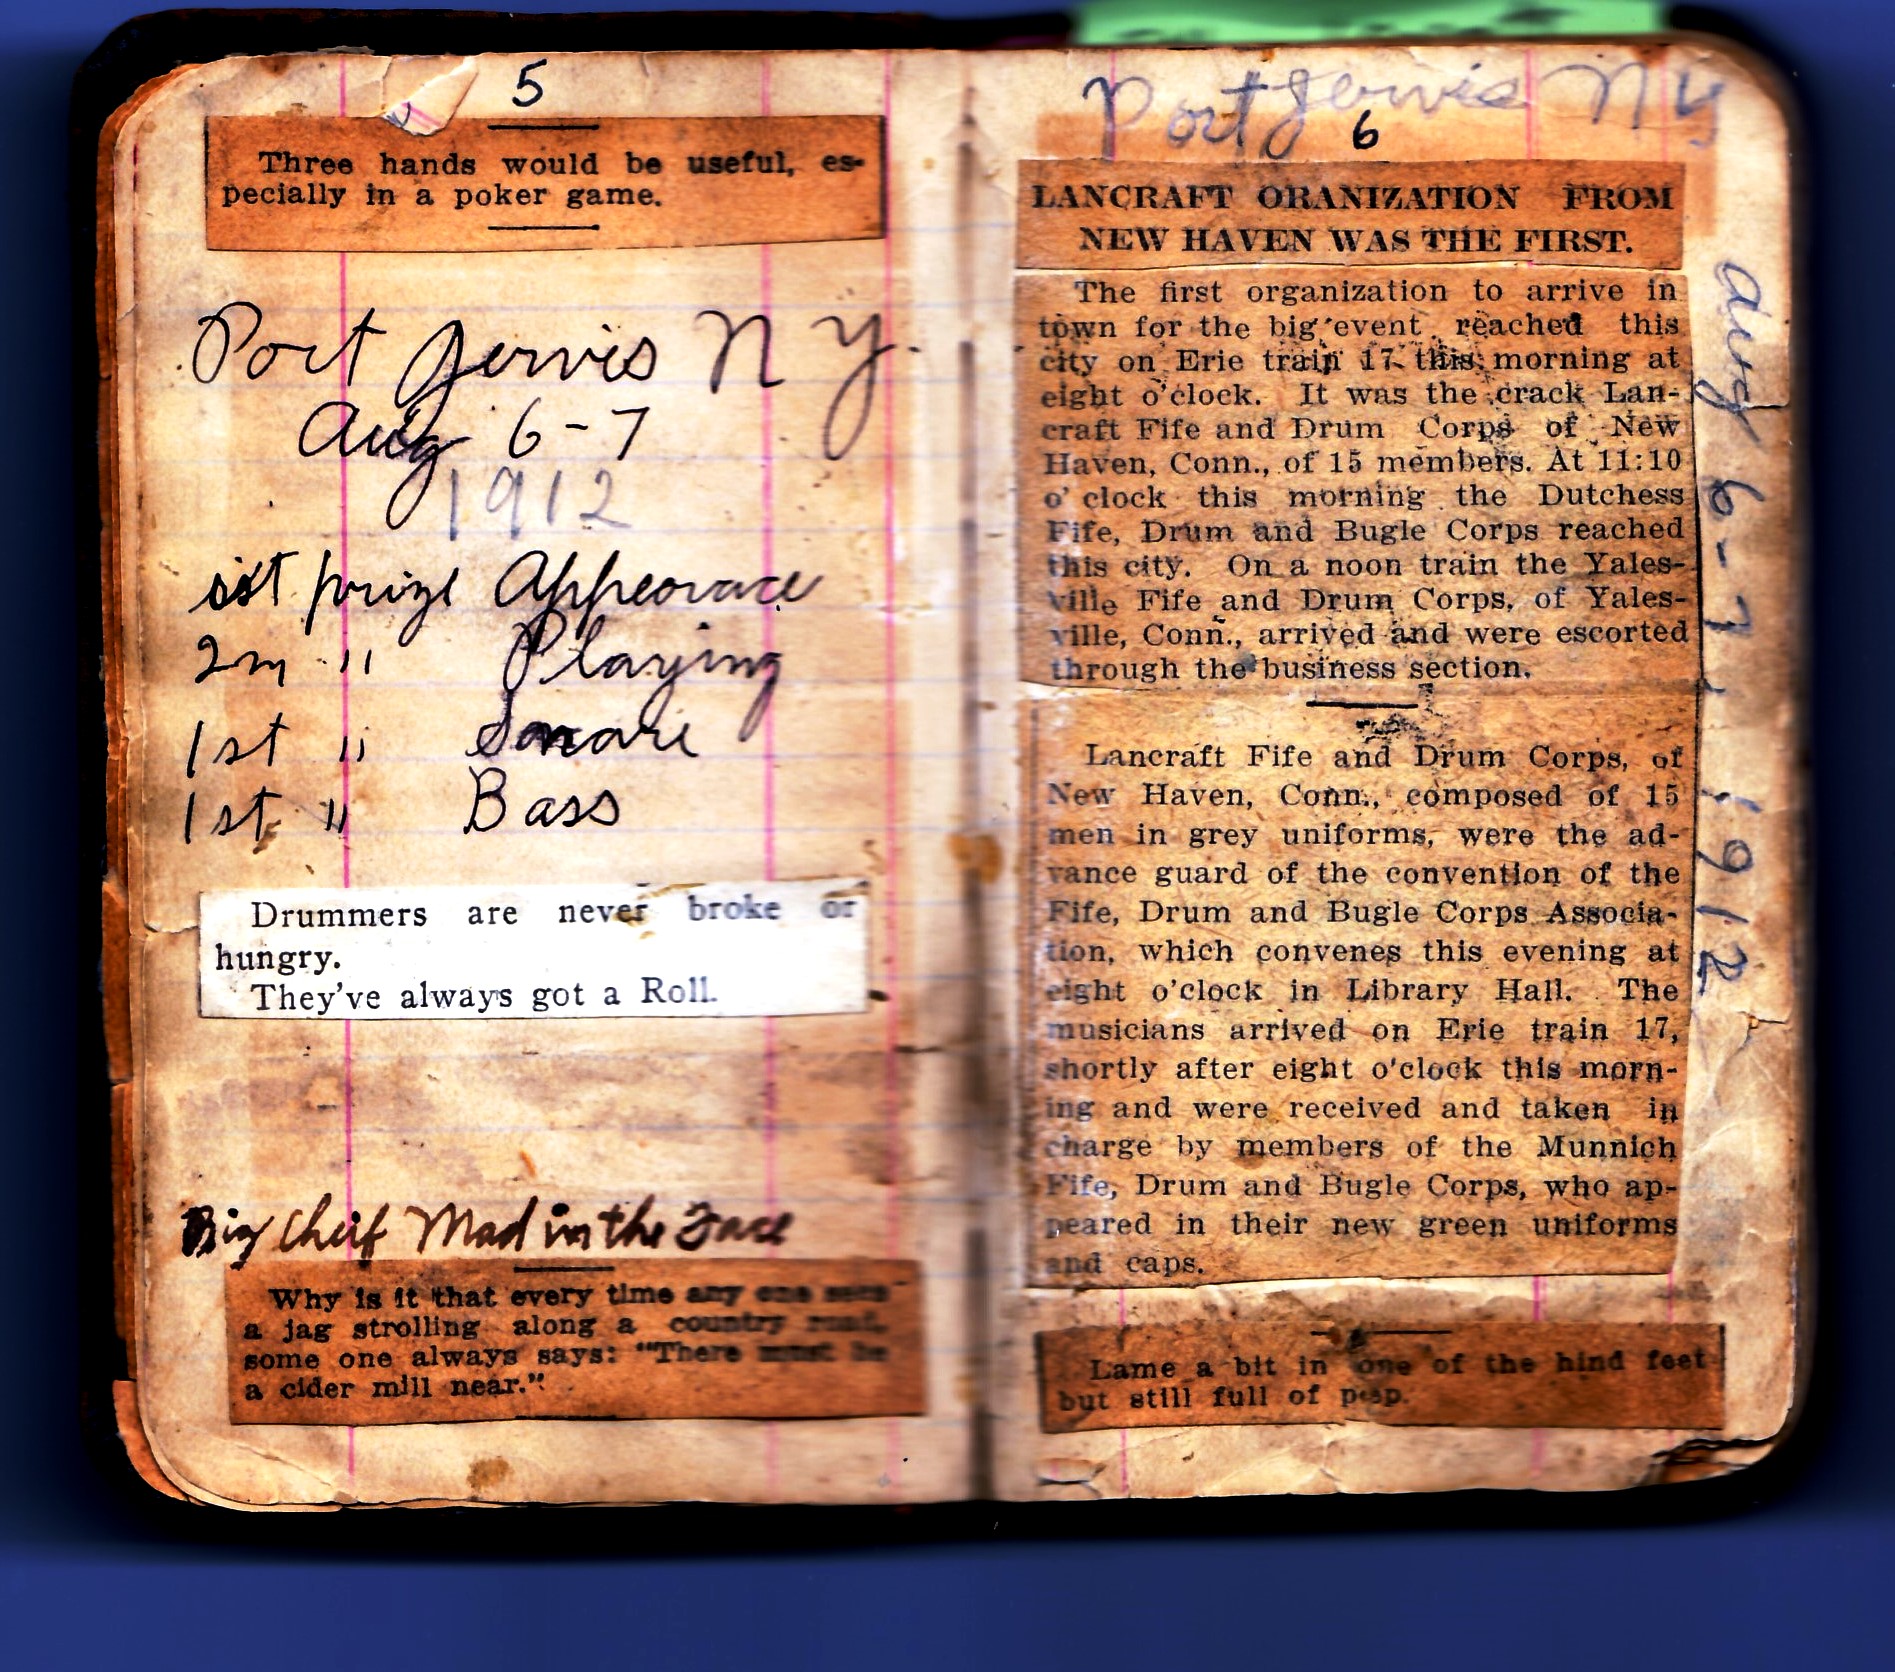 5
Three hands would be useful, es-
pecially in a poker game.
Port Jervis N Y.
Aug 6-7
1912
ist prize Appearace
2n " Playing
1st " Snare
1st " Bass
Drummers are never broke or
hungry.
They've always got a Roll.
Big Cheif Mad in the Face
Why is it that every time any one sees
a jag strolling along a country road,
some one always says: "There must be
a cider mill near."
Port Jervis N Y
6
LANCRAFT ORANIZATION FROM
NEW HAVEN WAS THE FIRST.
The first organization to arrive in
town for the big event reached this
city on Erie train 17 this morning at
eight o'clock. It was the crack Lan-
craft Fife and Drum Corps of New
Haven, Conn., of 15 members. At 11:10
o' clock this morning the Dutchess
Fife, Drum and Bugle Corps reached
this city. On a noon train the Yales-
ville Fife and Drum Corps, of Yales-
ville, Conn., arrived and were escorted
through the business section.
Lancraft Fife and Drum Corps, of
New Haven, Conn., composed of 15
men in grey uniforms, were the ad-
vance guard of the convention of the
Fife, Drum and Bugle Corps Associa-
tion, which convenes this evening at
eight o'clock in Library Hall. The
musicians arrived on Erie train 17,
shortly after eight o'clock this morn-
ing and were received and taken in
charge by members of the Munnich
Fife, Drum and Bugle Corps, who ap-
peared in their new green uniforms
and caps.
Lame a bit in one of the hind feet
but still full of pep.
Aug 6-7, 1912